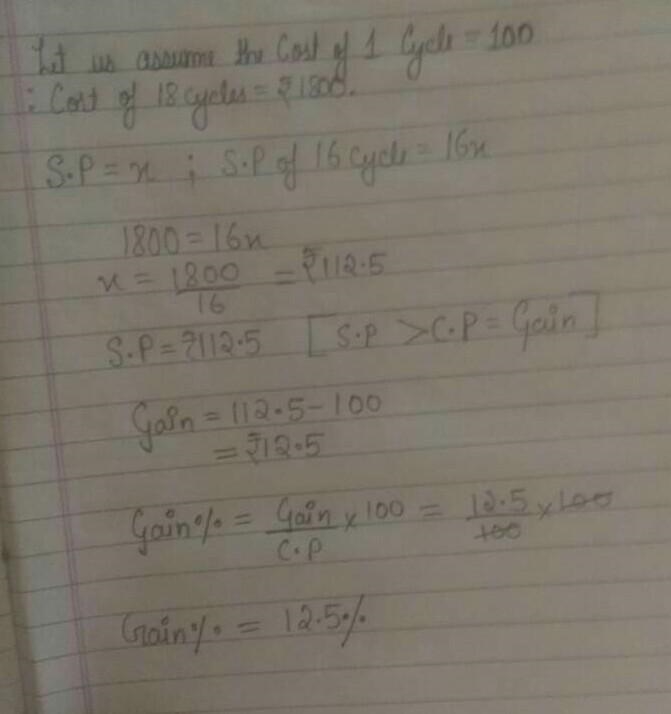 Let us assume the Cost of 1 Cycle = 100
: Cost of 18 cycles = ₹1800.
S.P = x ; S.P of 16 Cycle = 16x
1800 = 16x
x = 1800/16 = ₹112.5
S.P = ₹112.5 [S.P > C.P = Gain]
Gain = 112.5 - 100
= ₹12.5
Gain% = Gain/C.P x 100 = 12.5/100 x 100
Gain% = 12.5%